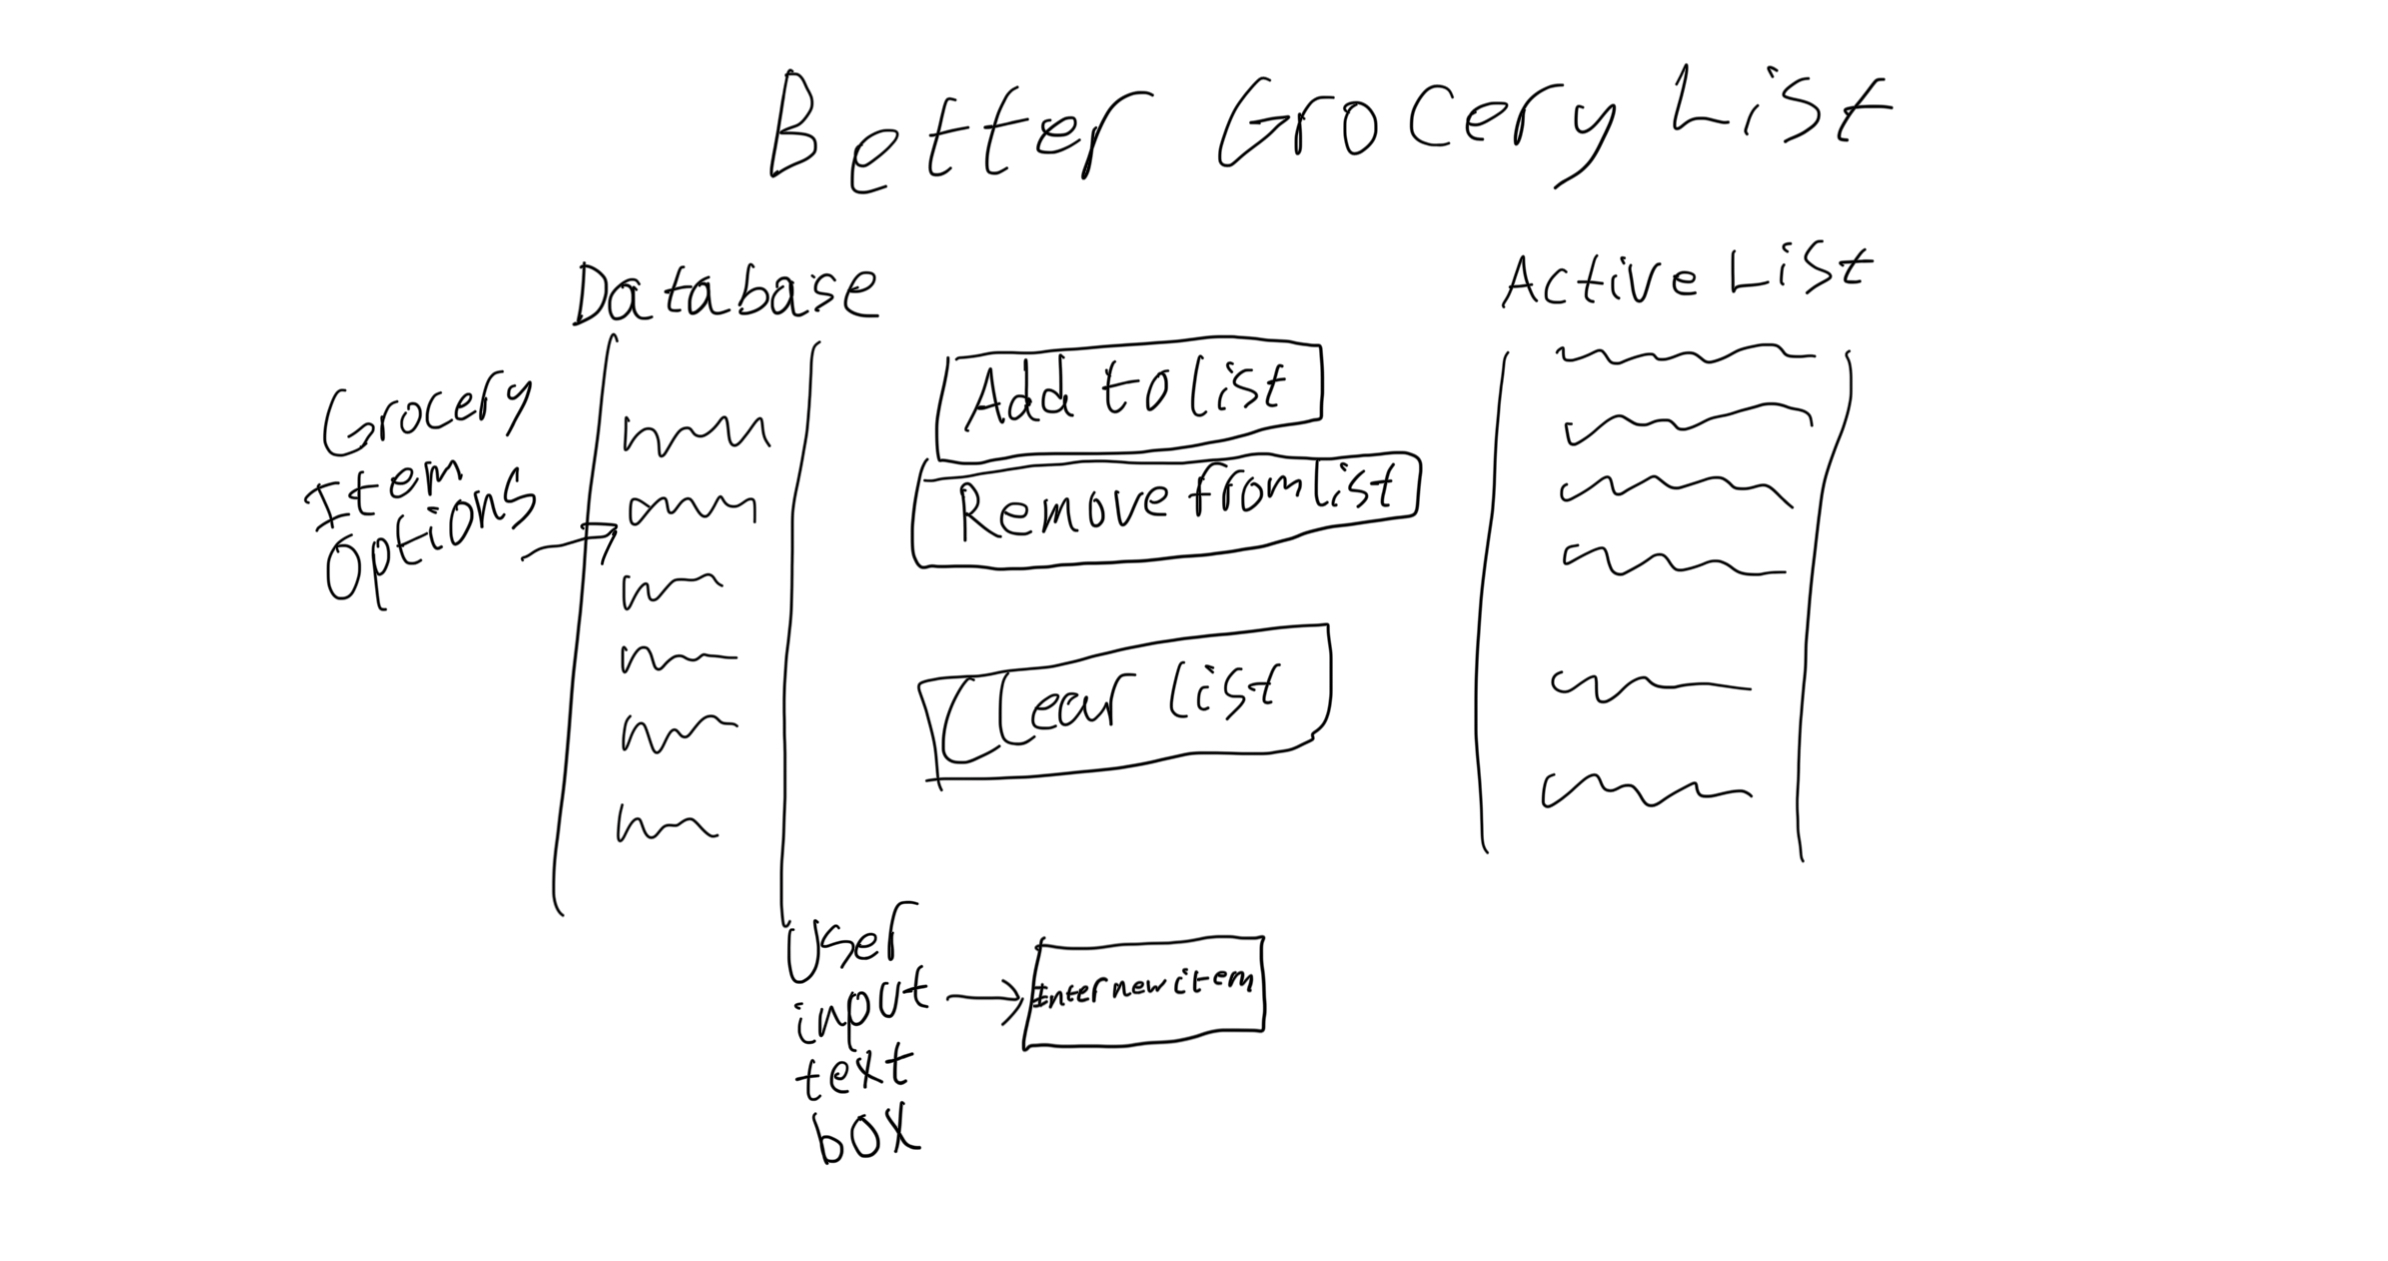 Better Grocery List
Database
Active List
Grocery
Item
Options
Add to list
Remove from list
Clear list
User
input
text
box
Enter new item